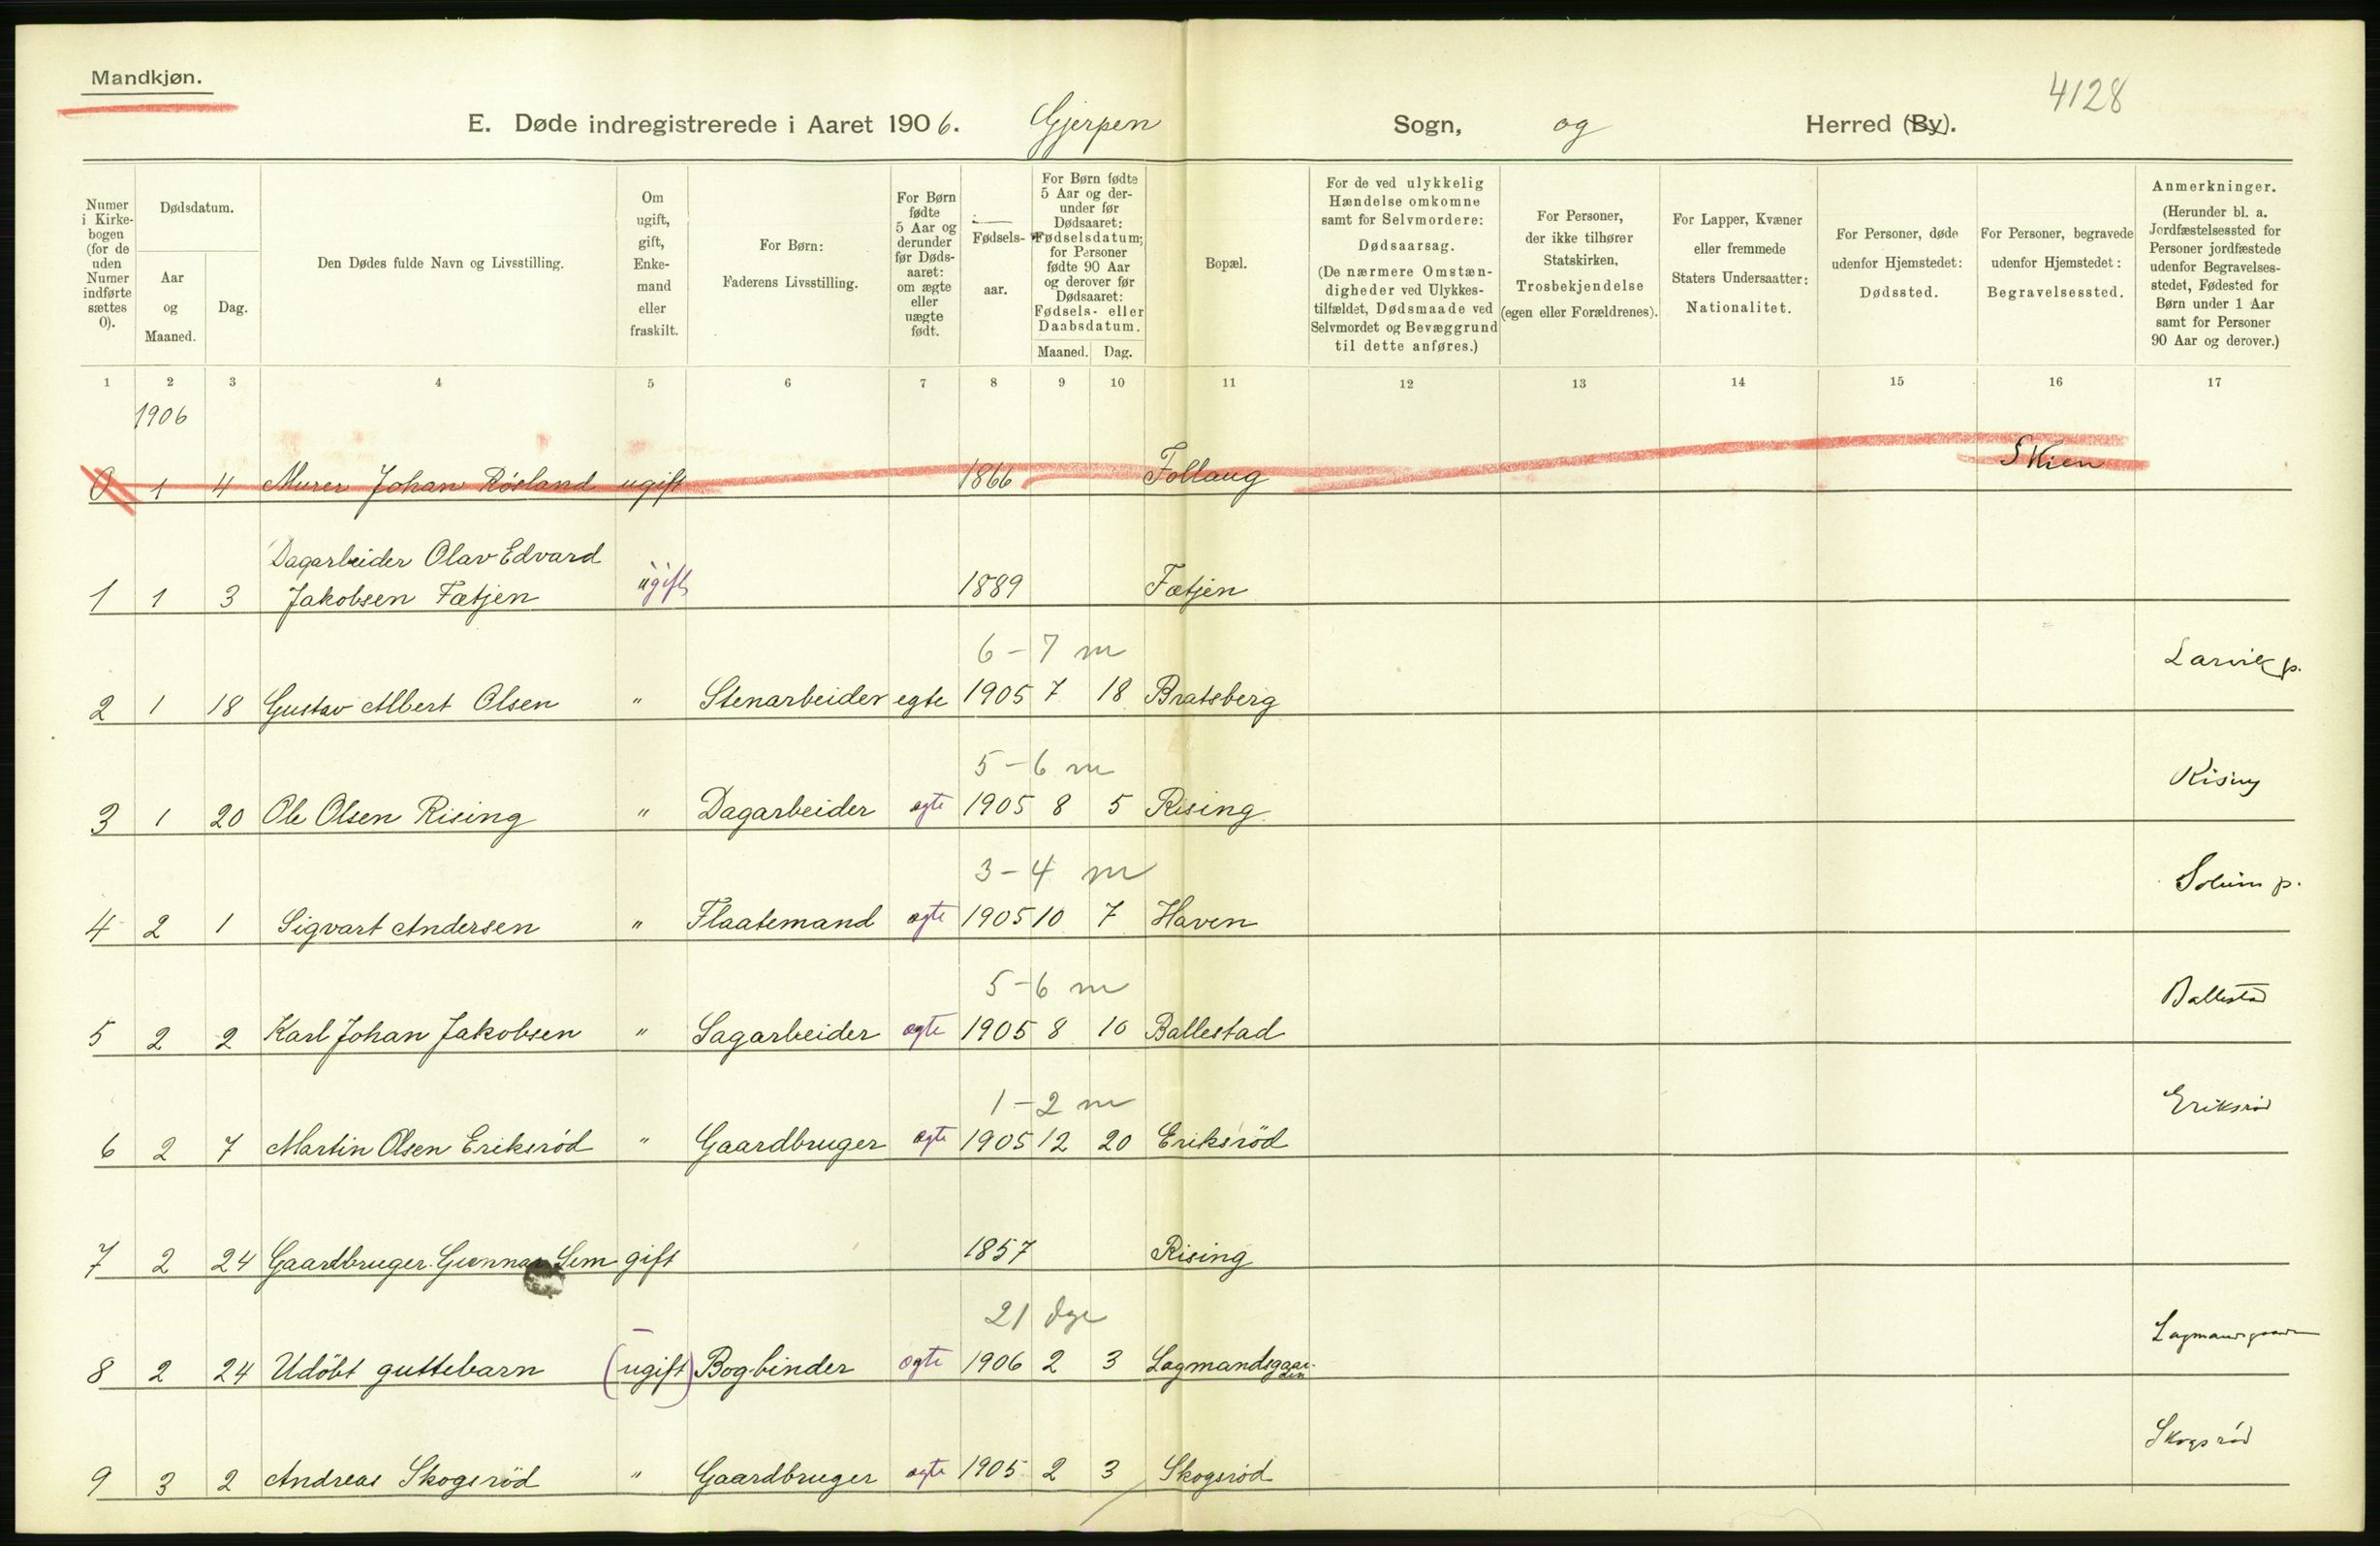 Mandkjøn.
4128
E. Døde indregistrerede i Aaret 1906. Gjerpen Sogn, og Herred (By).
Numer i Kirkebogen (for de uden Numer indførte sættes 0).
Dødsdatum.
Aar og Maaned.
Dag.
Den Dødes fulde Navn og Livsstilling.
Om ugift, gift, Enkemand eller fraskilt.
For Børn: Faderens Livsstilling.
For Børn fødte 5 Aar og derunder før Dødsaaret: om ægte eller uægte født.
Fødselsaar.
For Børn fødte 5 Aar og derunder før Dødsaaret: Fødselsdatum; for Personer fødte 90 Aar og derover før Dødsaaret: Fødsels- eller Daabsdatum.
Maaned. Dag.
Bopæl.
For de ved ulykkelig Hændelse omkomne samt for Selvmordere: Dødsaarsag. (De nærmere Omstændigheder ved Ulykkestilfældet, Dødsmaade ved Selvmordet og Bevæggrund til dette anføres.)
For Personer, der ikke tilhører Statskirken, Trosbekjendelse (egen eller Forældrenes).
For Lapper, Kvæner eller fremmede Staters Undersaatter: Nationalitet.
For Personer, døde udenfor Hjemstedet: Dødssted.
For Personer, begravede udenfor Hjemstedet: Begravelsessted.
Anmerkninger. (Herunder bl. a. Jordfæstelsessted for Personer jordfæstede udenfor Begravelsesstedet, Fødested for Børn under 1 Aar samt for Personer 90 Aar og derover.)
1 2 3 4 5 6 7 8 9 10 11 12 13 14 15 16 17
1906
0 1 4 Murer Johan Røsland ugift 1866 Follaug Skien
Dagarbeider Olav Edvard
1 1 3 Jakobsen Fætjen ugift 1889 Fætjen
6-7 m Larvik p.
2 1 18 Gustav Albert Olsen " Stenarbeider egte 1905 7 18 Bratsberg
5-6 m Rising
3 1 20 Ole Olsen Rising " Dagarbeider ægte 1905 8 5 Rising
3-4 m Solum p.
4 2 1 Sigvart Andersen " Flaatemand ægte 1905 10 7 Haven
5-6 m Ballestad
5 2 2 Karl Johan Jakobsen " Sagarbeider ægte 1905 8 10 Ballestad
1-2 m Eriksrød
6 2 7 Martin Olsen Eriksröd " Gaardbruger ægte 1905 12 20 Eriksröd
7 2 24 Gaardbruger Gunnar Sem gift 1857 Rising
21 dge
8 2 24 Udöbt guttebarn (ugift) Bogbinder ægte 1906 2 3 Lagmandsgaarden
Skogsrød
9 3 2 Andreas Skogsröd " Gaardbruger ægte 1905 2 3 Skogsröd